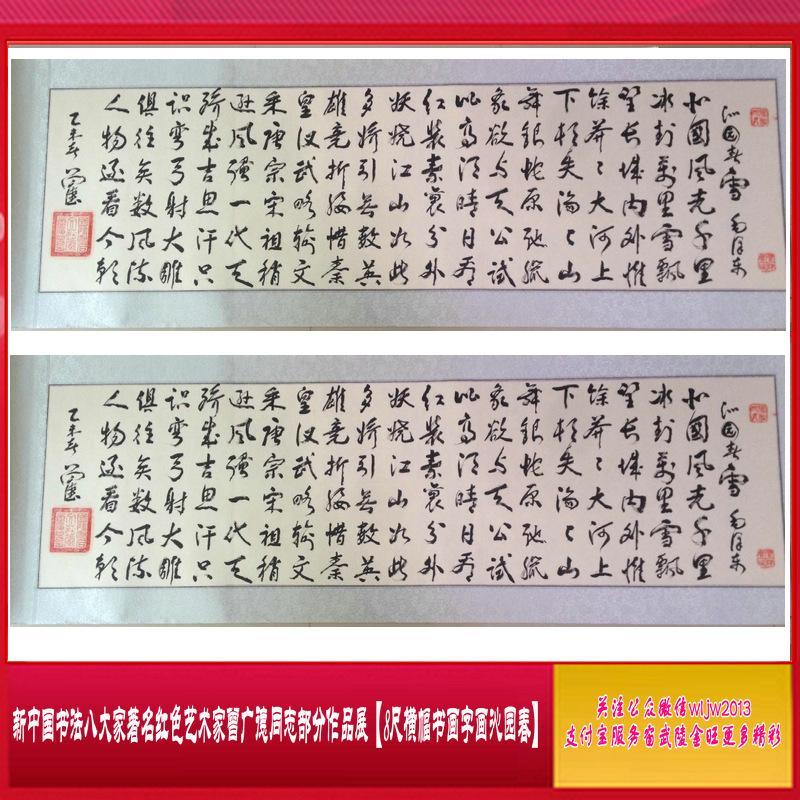 沁园春雪 毛泽东
北國风光千里
冰封萬里雪飘
望长城内外惟
馀莽ミ大河上
下顿失滔ミ山
舞银蛇原驰蜡
象欲与天公试
比高须晴日看
红装素裹分外
妖娆江山如此
多娇引无数英
雄竞折腰惜秦
皇汉武略输文
采唐宗宋祖稍
逊风骚一代天
骄成吉思汗只
识弯弓射大雕
俱往矣数风流
人物还看今朝
乙未春
沁园春雪 毛泽东
北國风光千里
冰封萬里雪飘
望长城内外惟
馀莽ミ大河上
下顿失滔ミ山
舞银蛇原驰蜡
象欲与天公试
比高须晴日看
红装素裹分外
妖娆江山如此
多娇引无数英
雄竞折腰惜秦
皇汉武略输文
采唐宗宋祖稍
逊风骚一代天
骄成吉思汗只
识弯弓射大雕
俱往矣数风流
人物还看今朝
乙未春
新中国书法八大家著名红色艺术家習广德同志部分作品展【8尺横幅书画字画沁园春】
关注公众微信wljw2013
支付宝服务窗武陵金旺更多精彩